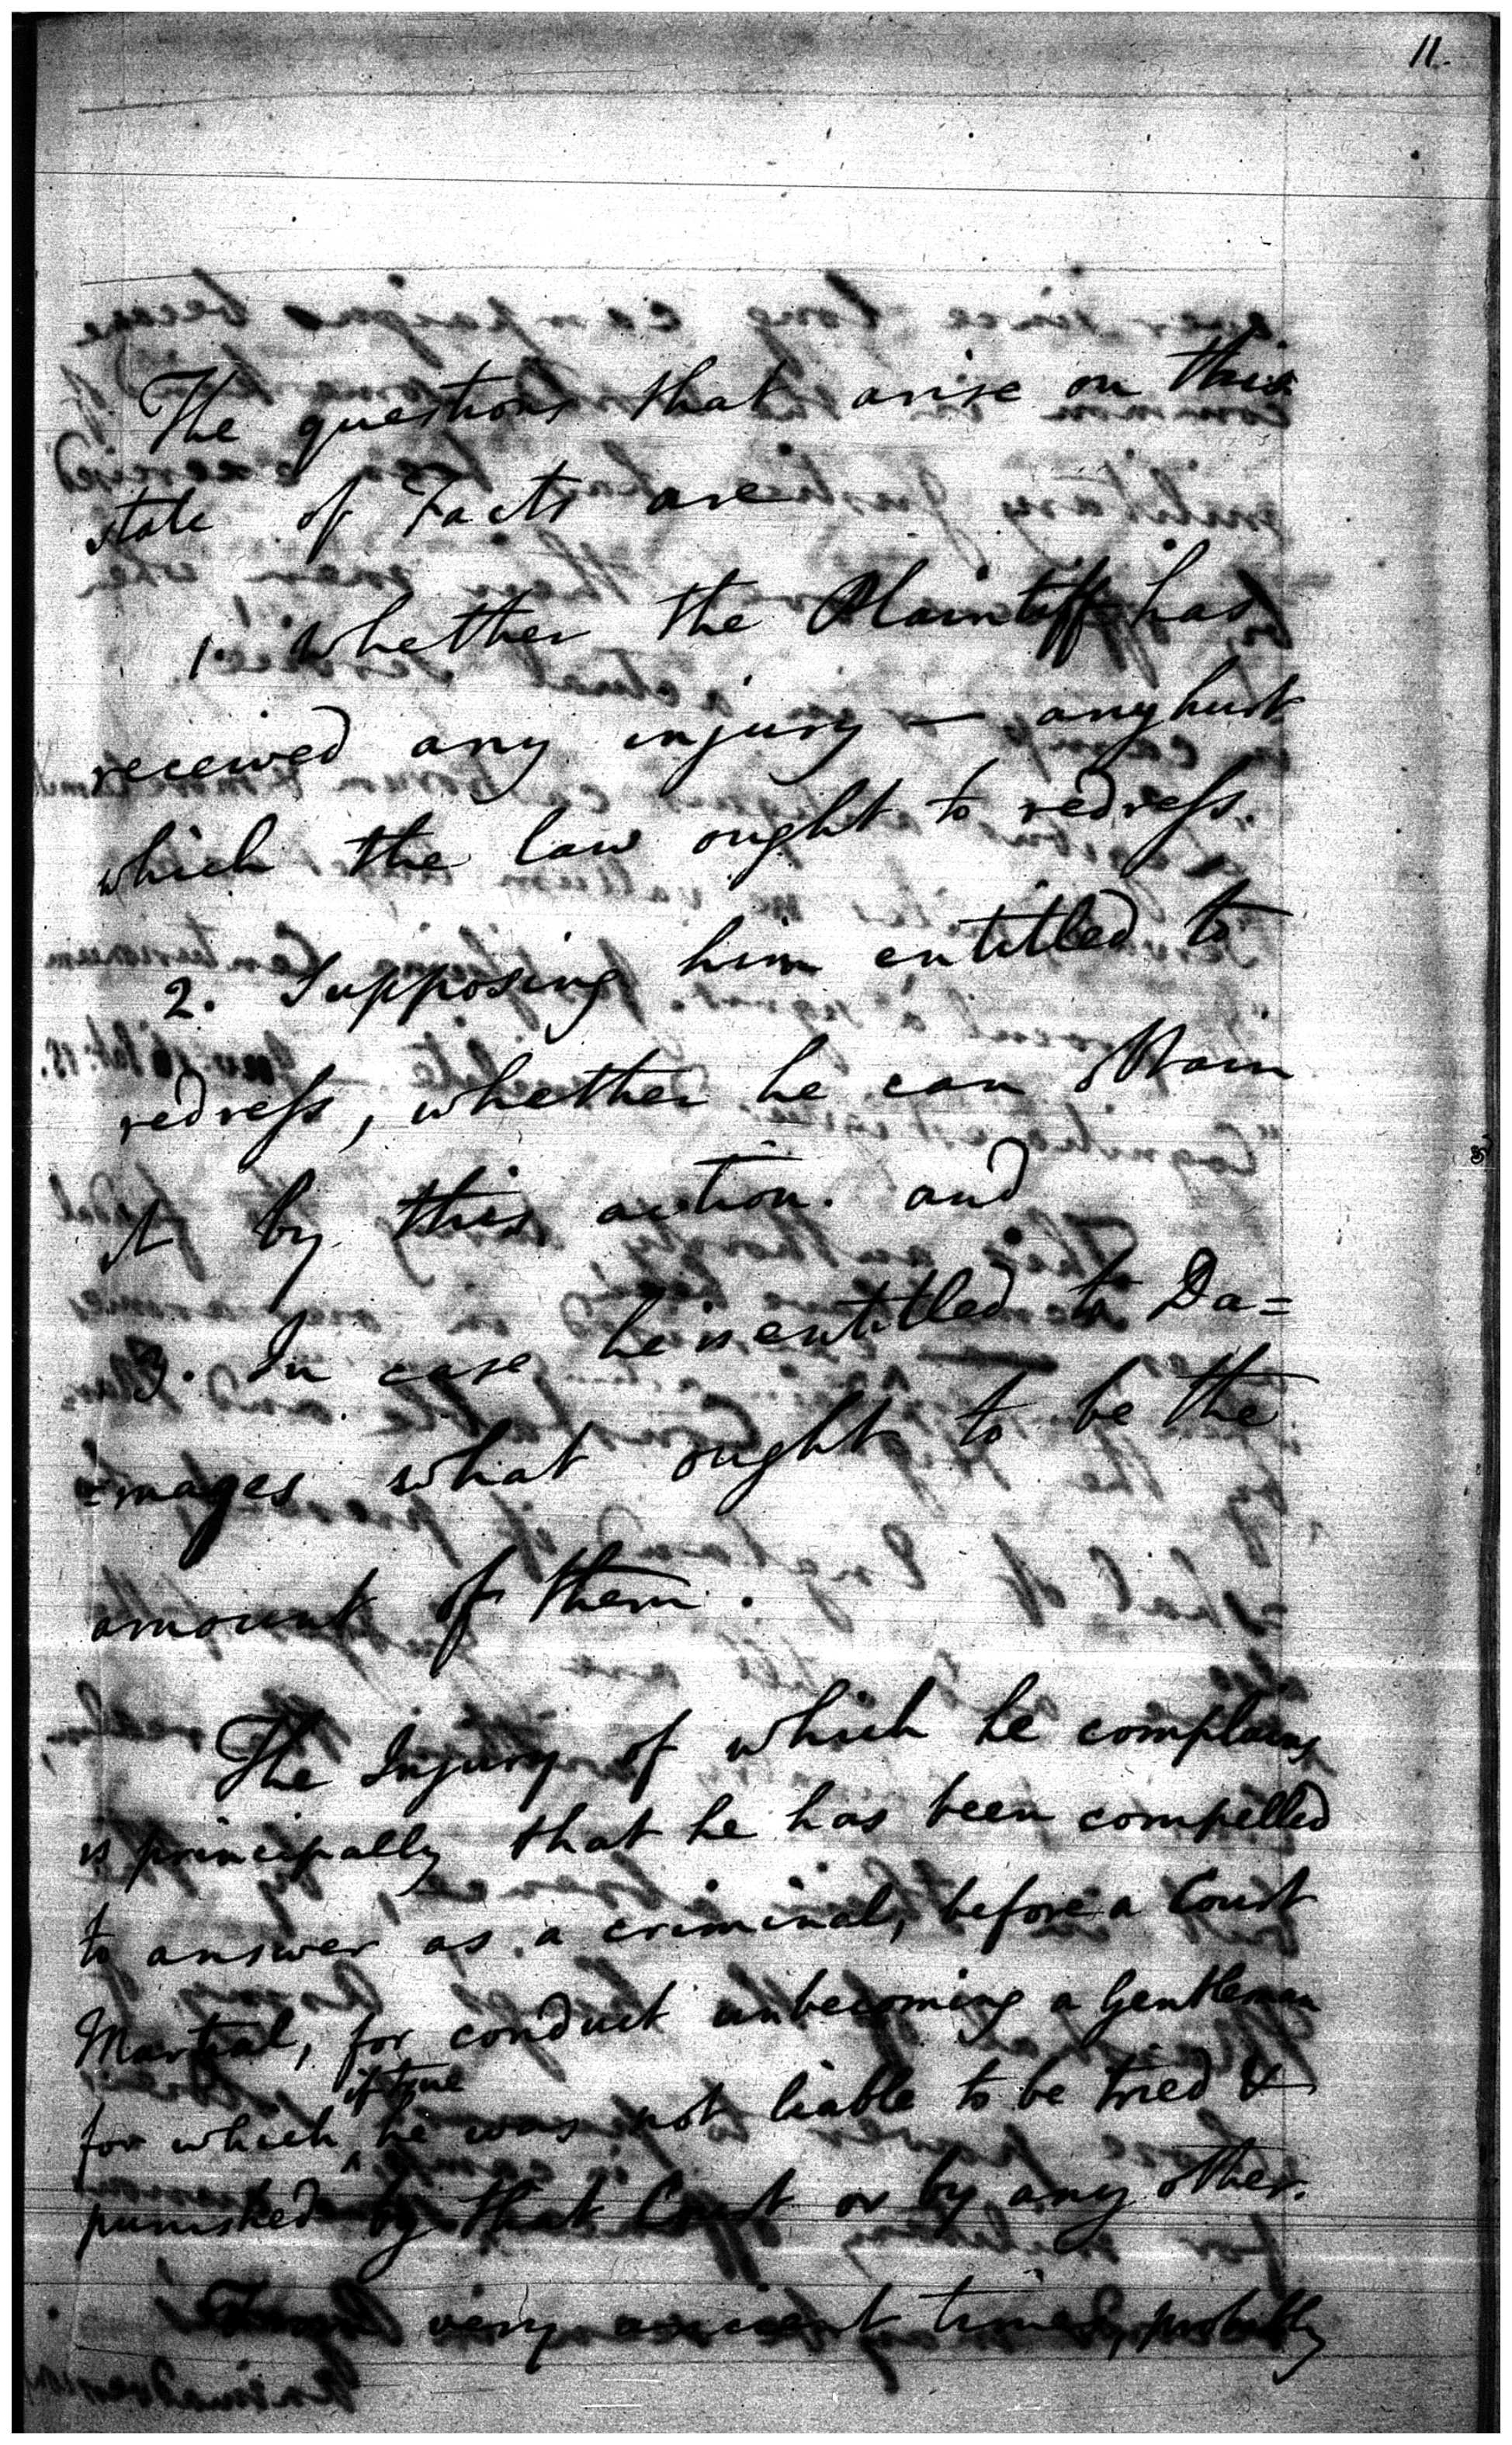 11.
The questions that arise on this
state of Facts are
1. whether the Plaintiff has
received any injury — any hurt
which the law ought to redress.
2. Supposing him entitled to
redress, whether he can obtain
it by this action. and
3. In case he is entitled to Da=
=mages what ought to be the
amount of them.
The Injury of which he complains
is principally that he has been compelled
to answer as a criminal, before a Court
Martial, for conduct unbecoming a Gentleman
if true
for which ^ he was not liable to be tried &
punished by that Court or by any other.
From very ancient times, probably